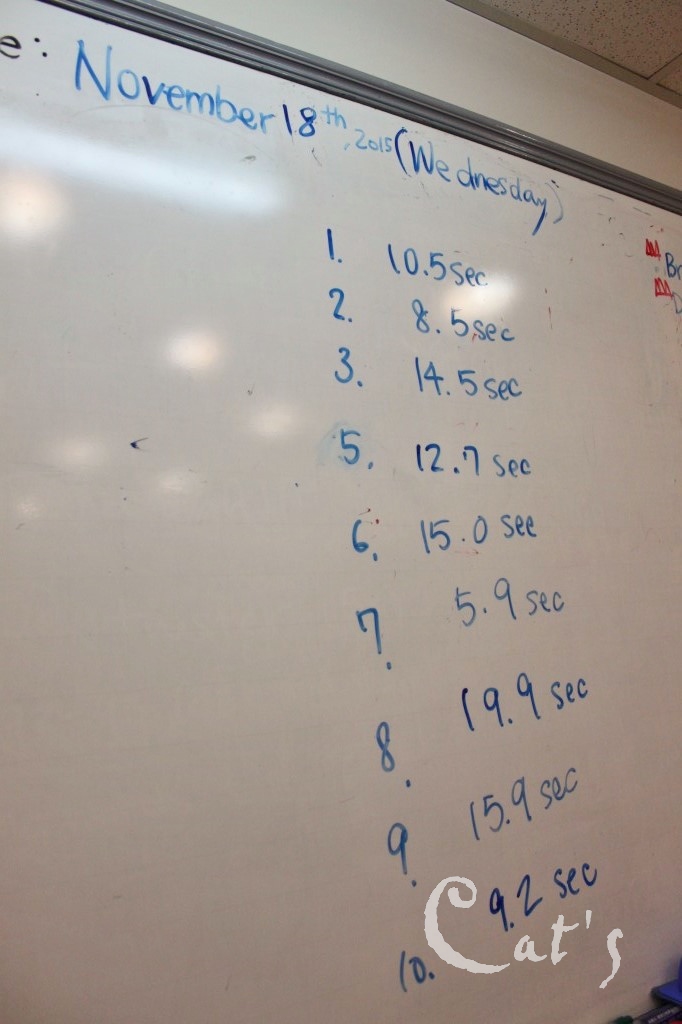 e: November 18th, 2015 (Wednesday)
1. 10.5 sec
2. 8.5 sec
3. 14.5 sec
5. 12.7 sec
6. 15.0 sec
7. 5.9 sec
8. 19.9 sec
9. 15.9 sec
10. 9.2 sec
Br
D
Cat's